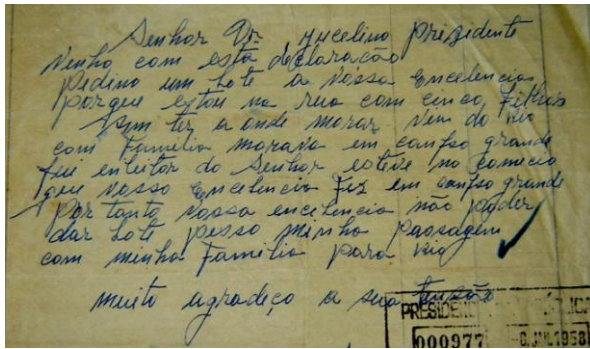 Senhor Dr Jucelino Prezidente
Venho com esta declaração
Pedino um Lote a Vossa Encelencia
Porque estou na rua com cinco Filhos
sem ter a onde morar vem do rio
com Familia morava em campo grande
fui enleitor do Senhor esteve no comecio
que Vosso Encelencia Fez em campo grande
Por tanto vossa encelencia não poder
dar Lote pesso minha Passagem
com minha Familia para rio
muito agradeço a sua
PRESIDENC
000977 1958